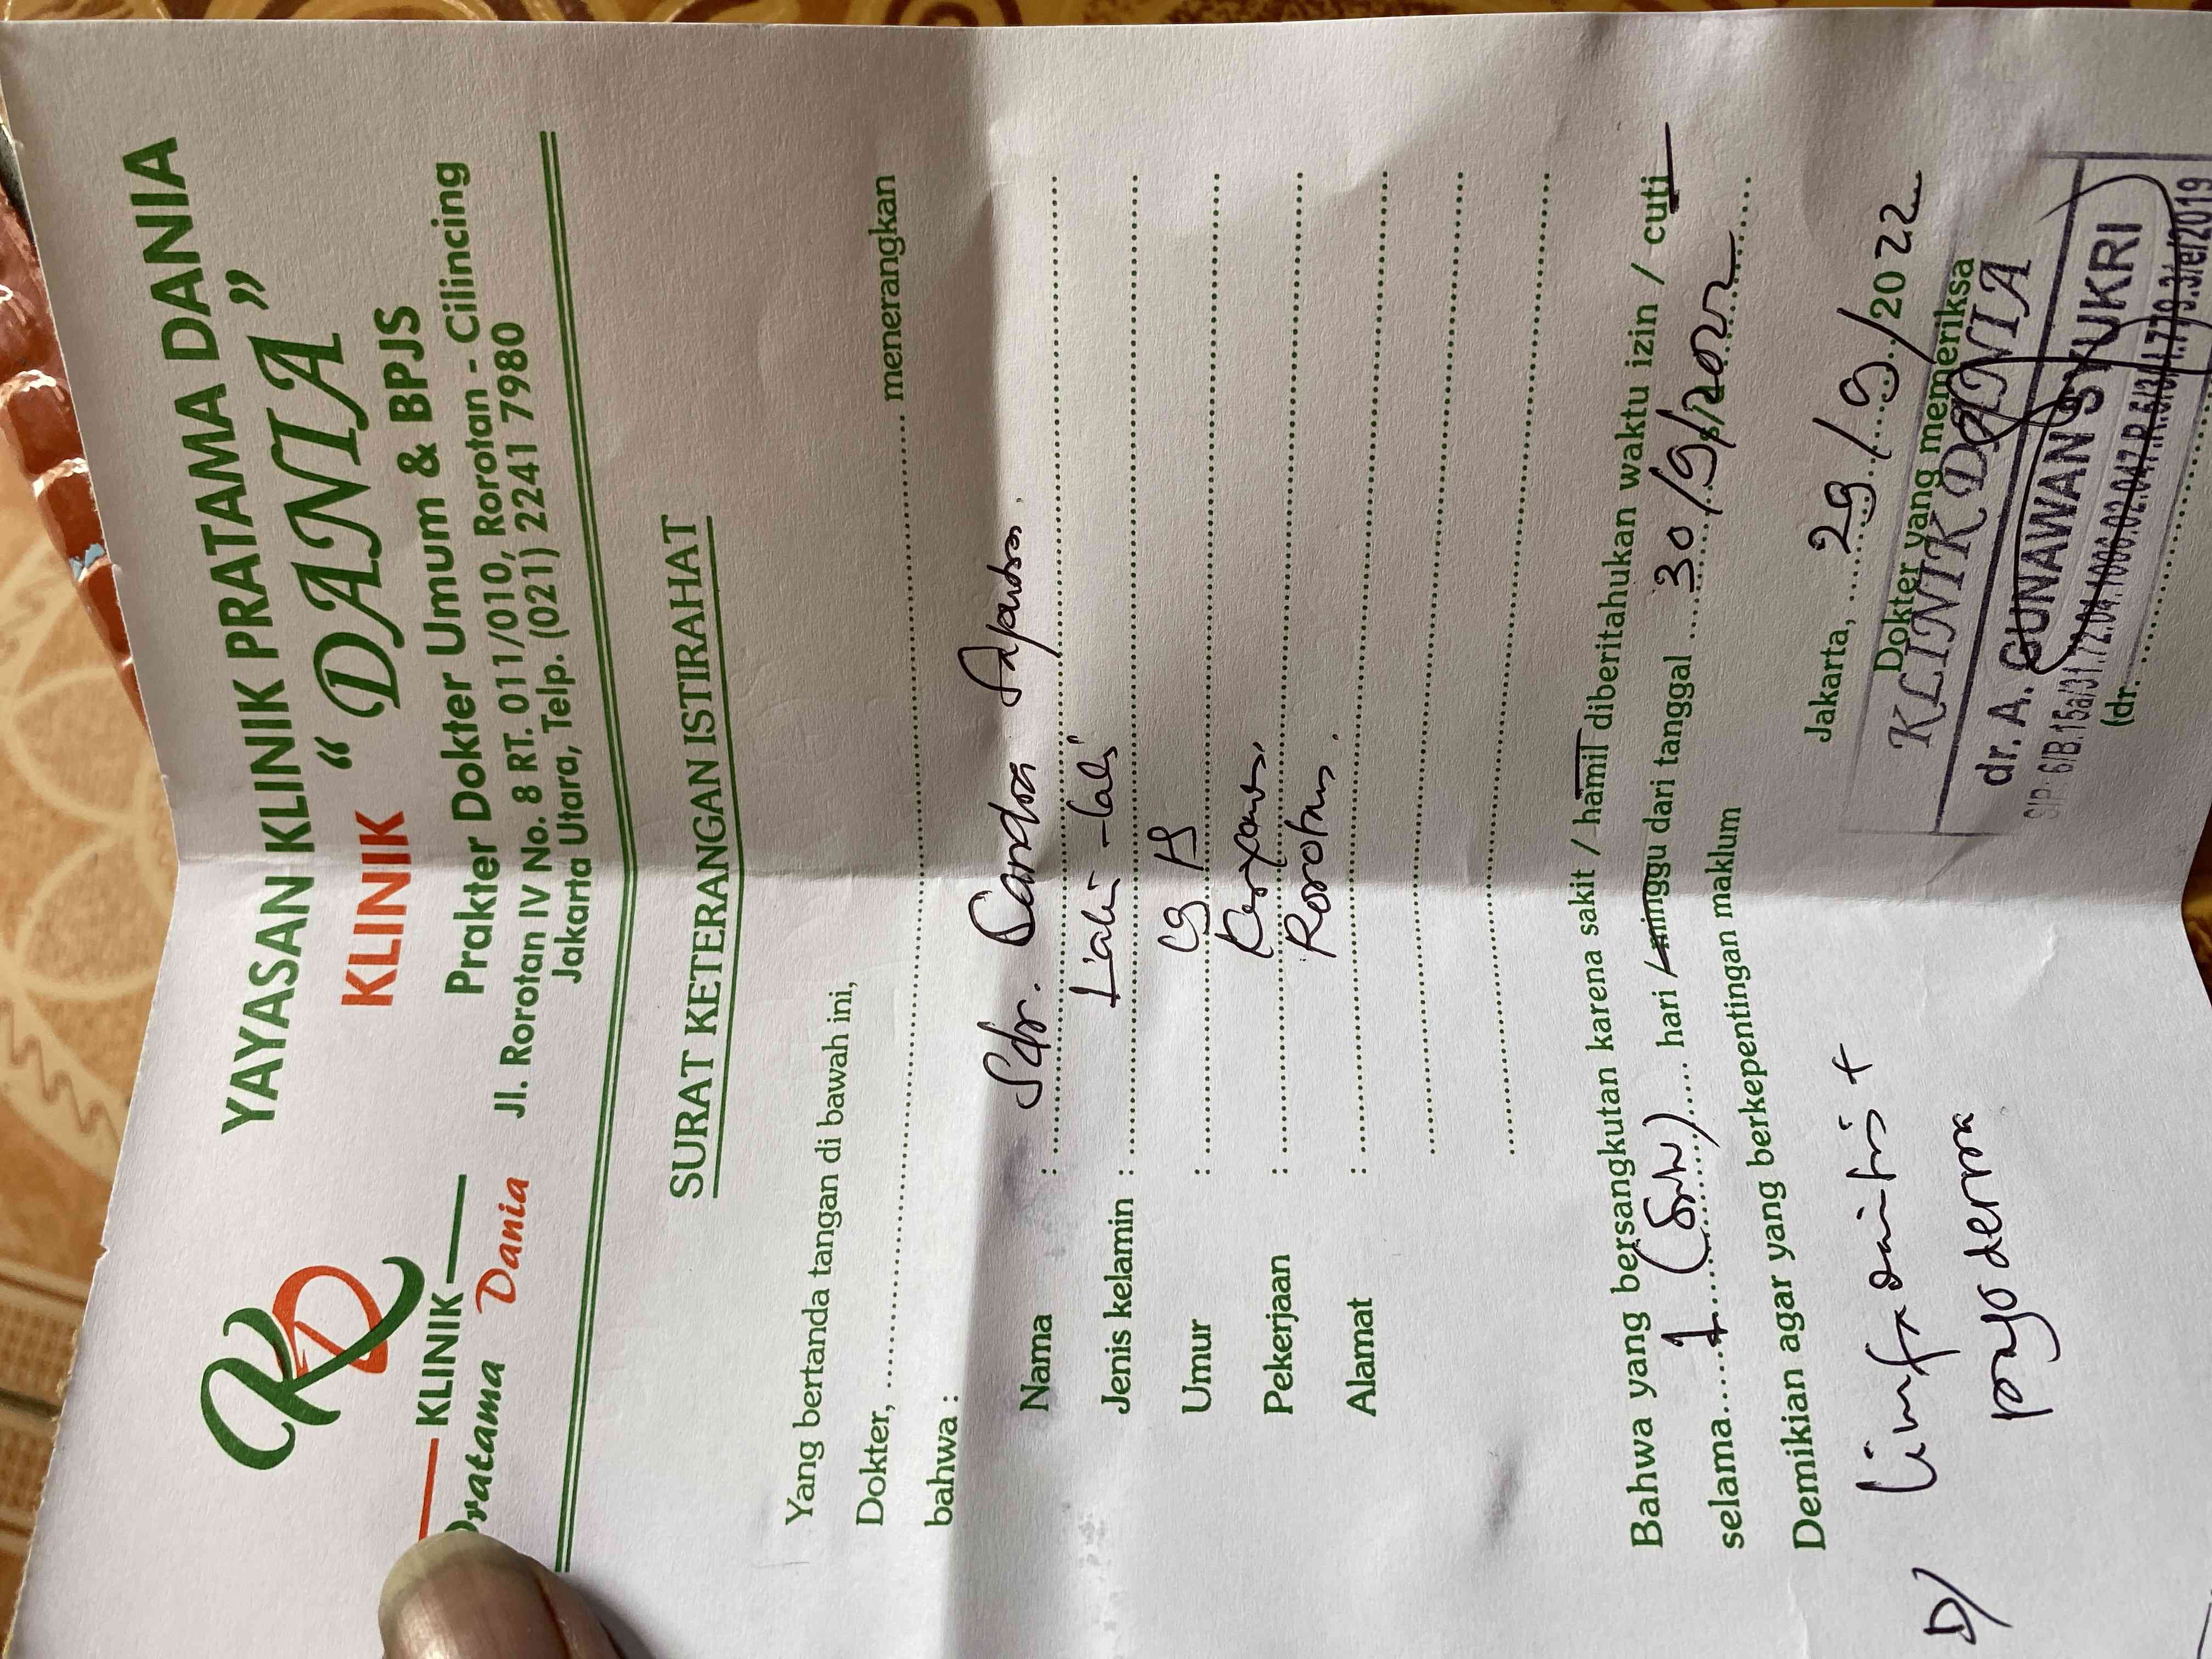 YAYASAN KLINIK PRATAMA DANIA
KLINIK " DANIA "
Prakter Dokter Umum & BPJS
Jl. Rorotan IV No. 8 RT. 011/010, Rorotan - Cilincing
Jakarta Utara, Telp. (021) 2241 7980
KLINIK
Pratama Dania
SURAT KETERANGAN ISTIRAHAT
Yang bertanda tangan di bawah ini,
Dokter, .......... menerangkan
bahwa :
Nama : Sdr. Candra Saputra.
Jenis kelamin : Laki-laki
Umur :
Pekerjaan :
Alamat : Rorotan.
Bahwa yang bersangkutan karena sakit / hamil diberitahukan waktu izin / cuti
selama 1 (Satu) hari / minggu dari tanggal 30/9/2022
Demikian agar yang berkepentingan maklum
Jakarta, 29/9/2022
Dokter yang memeriksa
KLINIK DANIA
dr. A. GUNAWAN SYUKRI
(dr.
D/ limfadenitis +
pyoderma